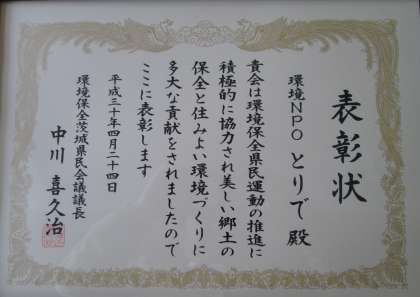 表彰状
環境NPOとりで 殿
貴会は環境保全県民運動の推進に
積極的に協力され美しい郷土の
保全と住みよい環境づくりに
多大な貢献をされましたので
ここに表彰します
平成三十年四月二十四日
環境保全茨城県民会議議長
中川 喜久治